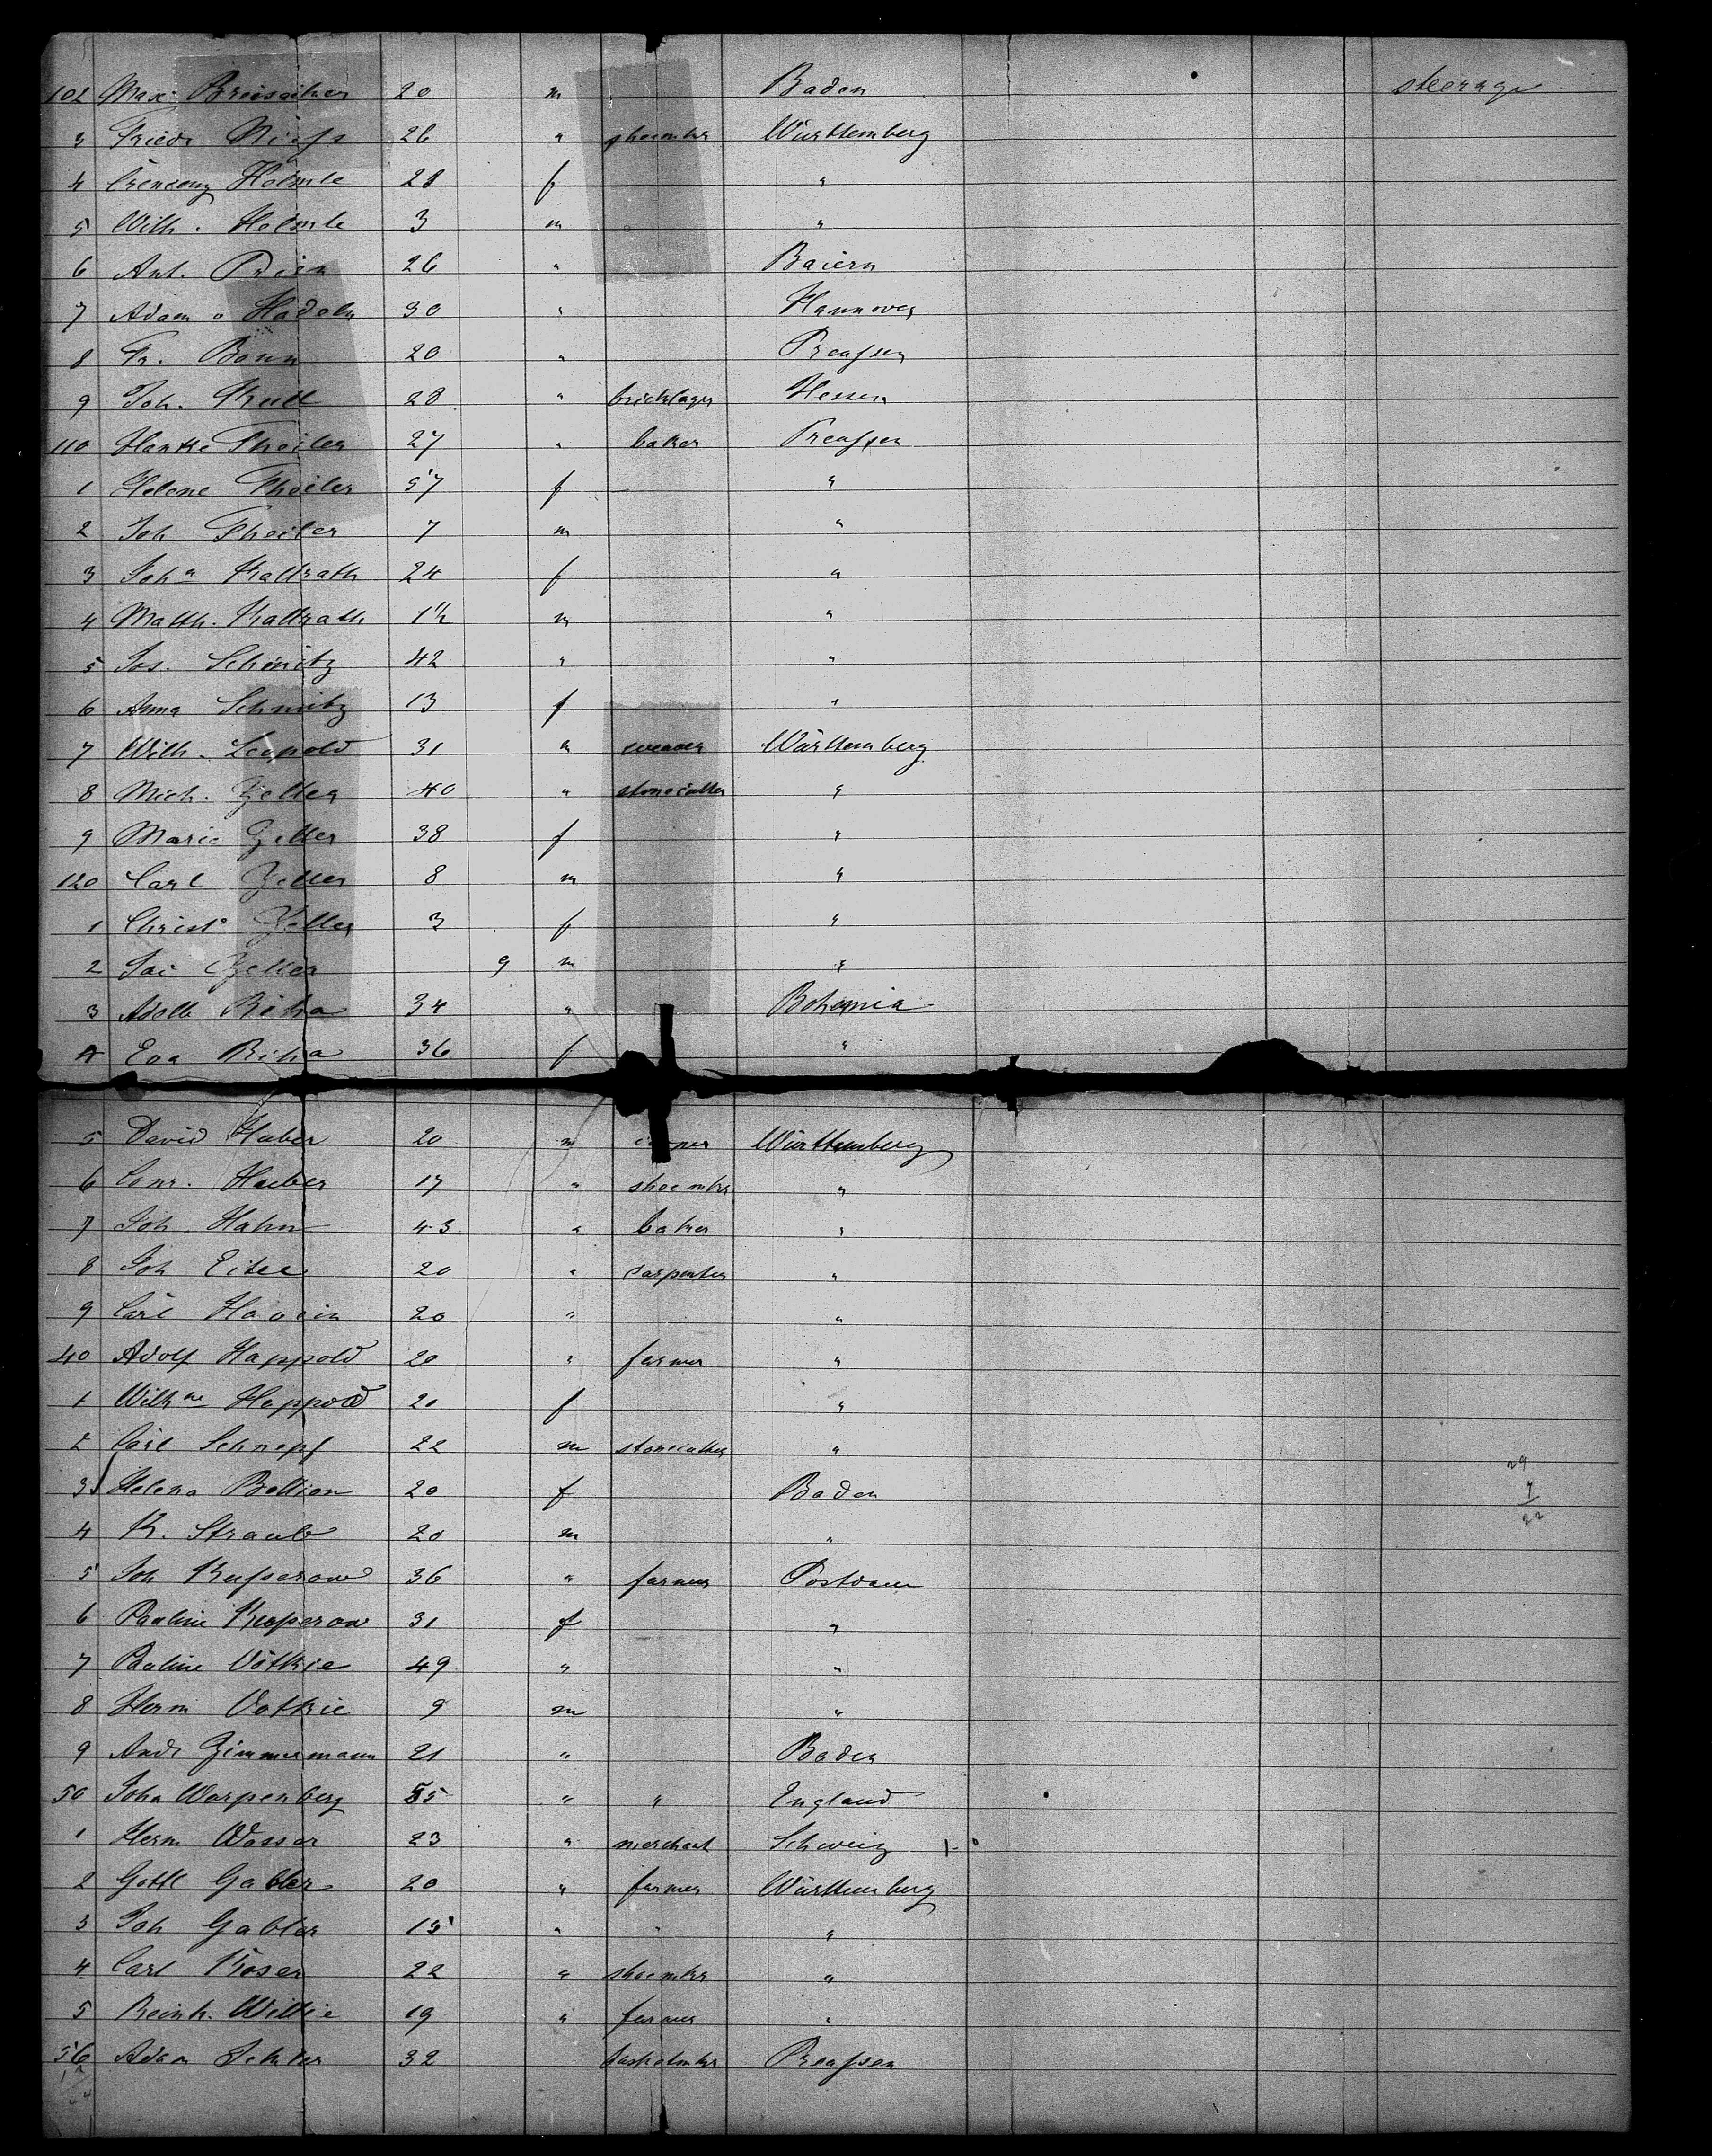 102 Max Breisacher 20 m Baden steerage
3 Friedr Niess 26 " shoemkr Württemberg
4 Crescenz Helmle 28 f "
5 Wilh. Helmle 3 m "
6 Ant. Prien 26 " Baiern
7 Adam v Hadeln 30 " Hannover
8 Fr. Bonn 20 " Preussen
9 Joh. Krull 28 " bricklayer Hessen
110 Theiler 27 " baker Preussen
1 Helene Theiler 57 f "
2 Joh Theiler 7 m "
3 Joha Kallrath 24 f "
4 Matth. Kallrath 1½ m "
5 Jos. Schmitz 42 " "
6 Anna Schmitz 13 f "
7 Wilh. Leopold 31 m weaver Württemberg
8 Mich. Zeller 40 " stonecutter "
9 Marie Zeller 38 f "
120 Carl Zeller 8 m "
1 Christe Zeller 3 f "
2 Zeller 9 m "
3 Adolb Riha 34 " Bohemia
4 Eva Riha 36 f "
5 David Huber 20 m Württemberg
6 Conr. Huber 17 " shoemkr "
7 Joh. Hahn 43 " baker "
8 Joh Eitel 20 " carpenter "
9 Carl 20 " "
40 Adolf Happold 20 " farmer "
1 Wilhne Happold 20 f "
2 Carl Schnepf 22 m stonecutter "
3 Helena Bollion 20 f Baden
4 K. Straub 20 m "
5 Joh Kusserow 36 " farmer Postdam
6 Pauline Kusserow 31 f "
7 Pauline Votkie 49 " "
8 Herm Votkie 9 m "
9 Andr Zimmermann 21 " Baden
50 John Warpenberg 55 " " England
1 Herm Wasser 23 " merchant Schweiz
2 Gottl Gabler 20 " farmer Württemberg
3 Joh Gabler 15 " "
4 Carl Koser 22 " shoemkr "
5 Reinh. Willie 19 " farmer "
56 Adam 32 basketmkr Preussen